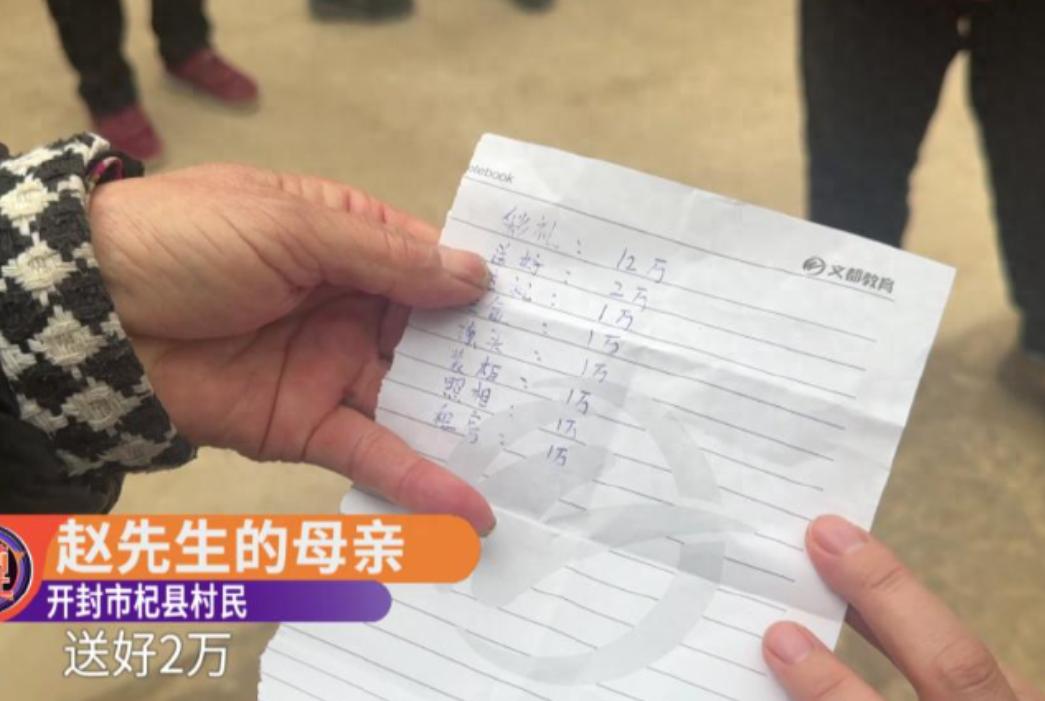 otebook
文都教育
彩礼： 12万
送好： 2万
： 1万
： 1万
馒头： 1万
装柜： 1万
照相： 1万
： 1万
赵先生的母亲
开封市杞县村民
送好2万